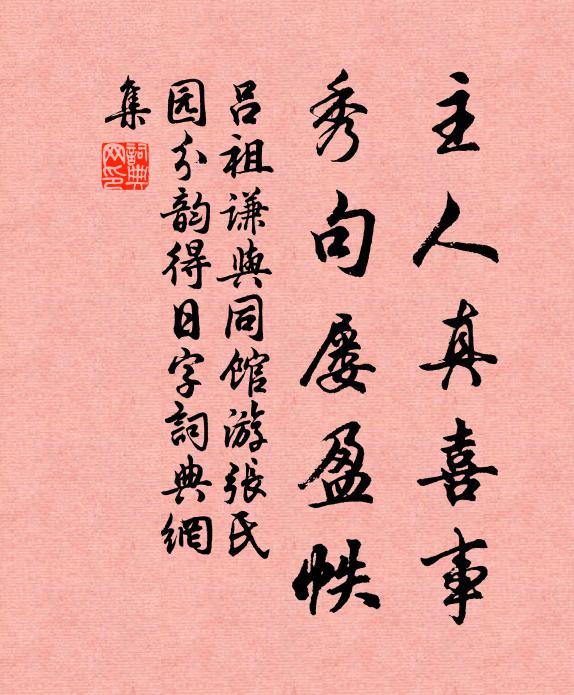 主人真喜事
秀句屡盈帙
吕祖谦與同馆游張氏
园分韵得日字詞典網
集
詞典網印